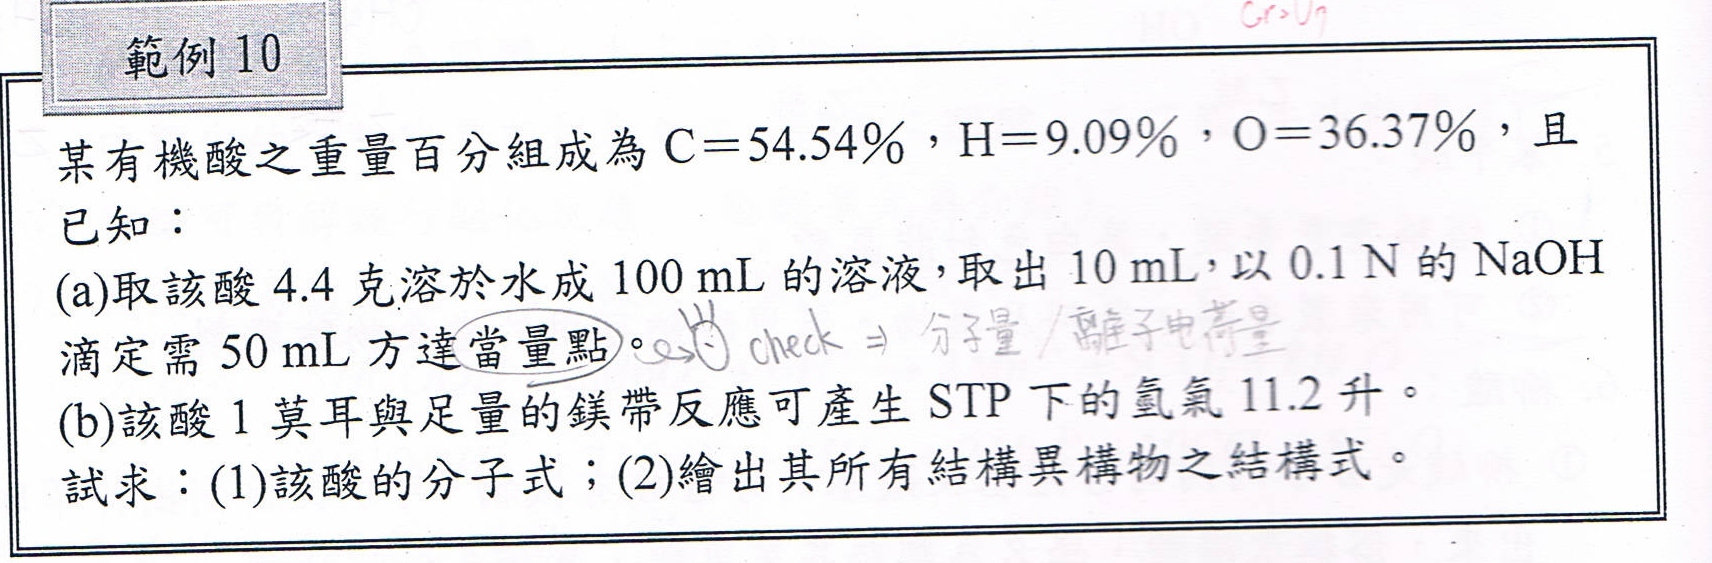 Gr>Un
範例 10
某有機酸之重量百分組成為 C=54.54%,H=9.09%,O=36.37%,且
已知:
(a)取該酸 4.4 克溶於水成 100 mL 的溶液,取出 10 mL,以 0.1 N 的 NaOH
滴定需 50 mL 方達當量點。 check ⇒ 分子量/離子电荷量
(b)該酸 1 莫耳與足量的鎂帶反應可產生 STP 下的氫氣 11.2 升。
試求:(1)該酸的分子式;(2)繪出其所有結構異構物之結構式。